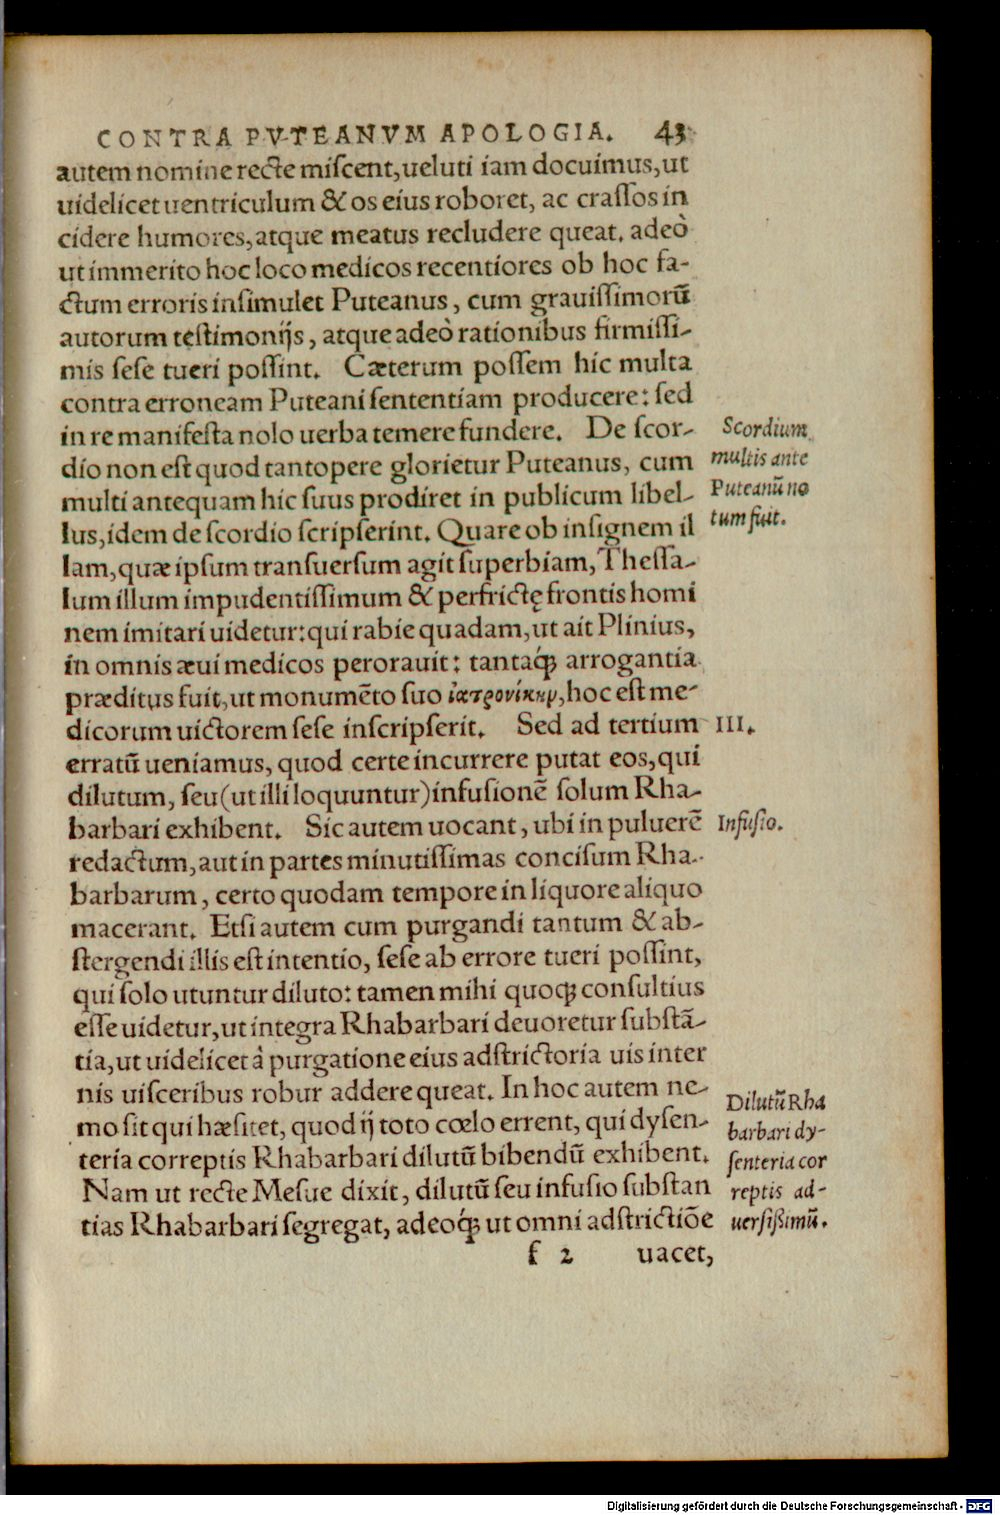 CONTRA PVTEANVM APOLOGIA. 43
autem nomine recte miſcent, ueluti iam docuimus, ut
uidelicet uentriculum & os eius roboret, ac craſſos in
cidere humores, atque meatus recludere queat. adeò
ut immerito hoc loco medicos recentiores ob hoc fa-
ctum erroris inſimulet Puteanus, cum grauiſſimorū
autorum teſtimonijs, atque adeò rationibus firmiſſi-
mis ſeſe tueri poſſint. Cæterum poſſem hic multa
contra erroneam Puteani ſententiam producere: ſed
in re manifeſta nolo uerba temere fundere. De ſcor-
dio non eſt quod tantopere glorietur Puteanus, cum
multi antequam hic ſuus prodiret in publicum libel-
lus, idem de ſcordio ſcripſerint. Quare ob inſignem il
lam, quæ ipſum tranſuerſum agit ſuperbiam, Theſſa-
lum illum impudentiſſimum & perfrictę frontis homi
nem imitari uidetur: qui rabie quadam, ut ait Plinius,
in omnis æui medicos perorauit: tantaq́ꝫ arrogantia
præditus fuit, ut monumēto ſuo ἰατρονίκην, hoc eſt me-
dicorum uictorem ſeſe inſcripſerit. Sed ad tertium
erratū ueniamus, quod certe incurrere putat eos, qui
dilutum, ſeu (ut illi loquuntur) infuſionē ſolum Rha-
barbari exhibent. Sic autem uocant, ubi in puluerē
redactum, aut in partes minutiſſimas conciſum Rha-
barbarum, certo quodam tempore in liquore aliquo
macerant. Etſi autem cum purgandi tantum & ab-
ſtergendi illis eſt intentio, ſeſe ab errore tueri poſſint,
qui ſolo utuntur diluto: tamen mihi quoqꝫ conſultius
eſſe uidetur, ut integra Rhabarbari deuoretur ſubſtā-
tia, ut uidelicet à purgatione eius adſtrictoria uis inter
nis uiſceribus robur addere queat. In hoc autem ne-
mo ſit qui hæſitet, quod ij toto cœlo errent, qui dyſen-
teria correptis Rhabarbari dilutū bibendū exhibent.
Nam ut recte Meſue dixit, dilutū ſeu infuſio ſubſtan
tias Rhabarbari ſegregat, adeoq́ꝫ ut omni adſtrictiōe
f 2 uacet,
Scordium
multis ante
Puteanū no
tum fuit.
III.
Infuſio.
Dilutū Rha
barbari dy-
ſenteria cor
reptis ad-
uerſiſſimū.
Digitalisierung gefördert durch die Deutsche Forschungsgemeinschaft - DFG